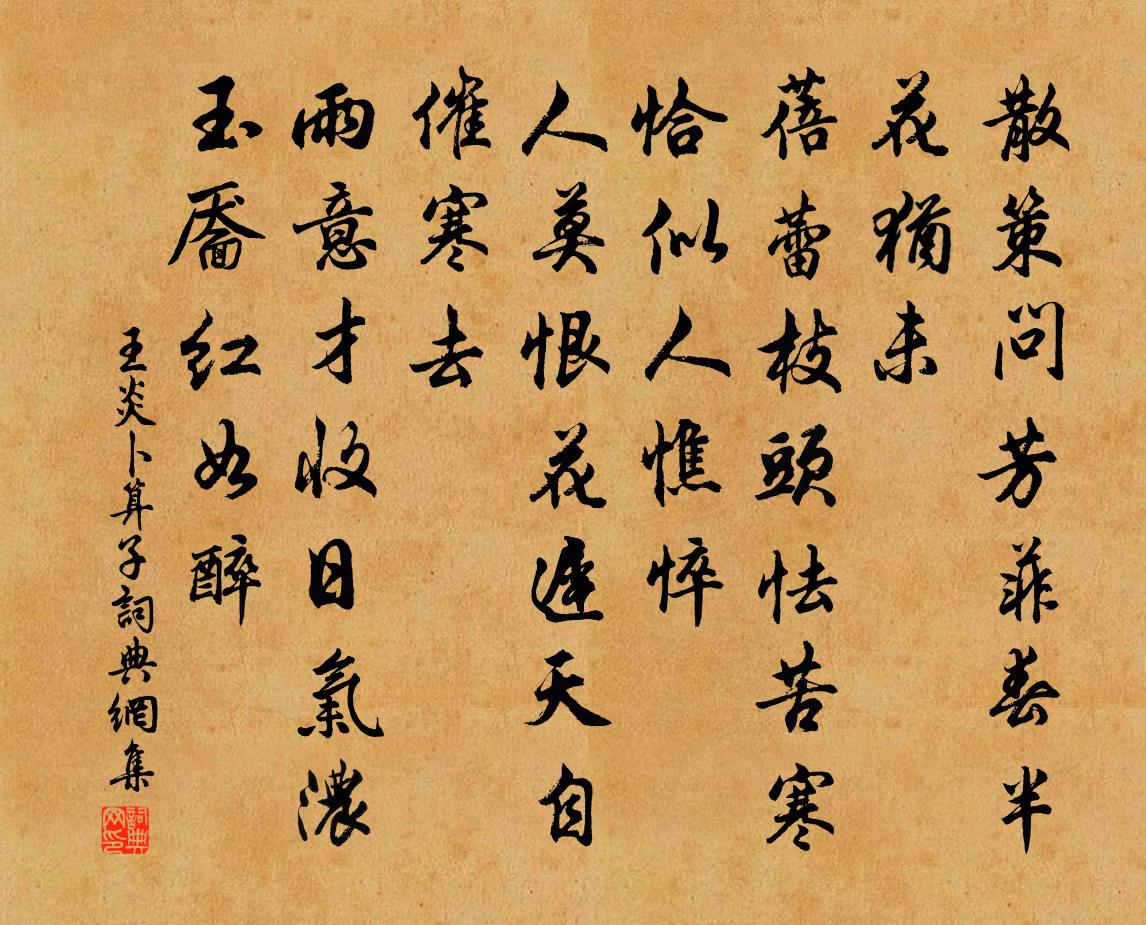 散策問芳菲春半
花猶未
蓓蕾枝頭怯苦寒
恰似人憔悴
人莫恨花遲天自
催寒去
雨意才收日氣濃
玉靨红如醉
王炎卜算子詞典網集
詞典网印